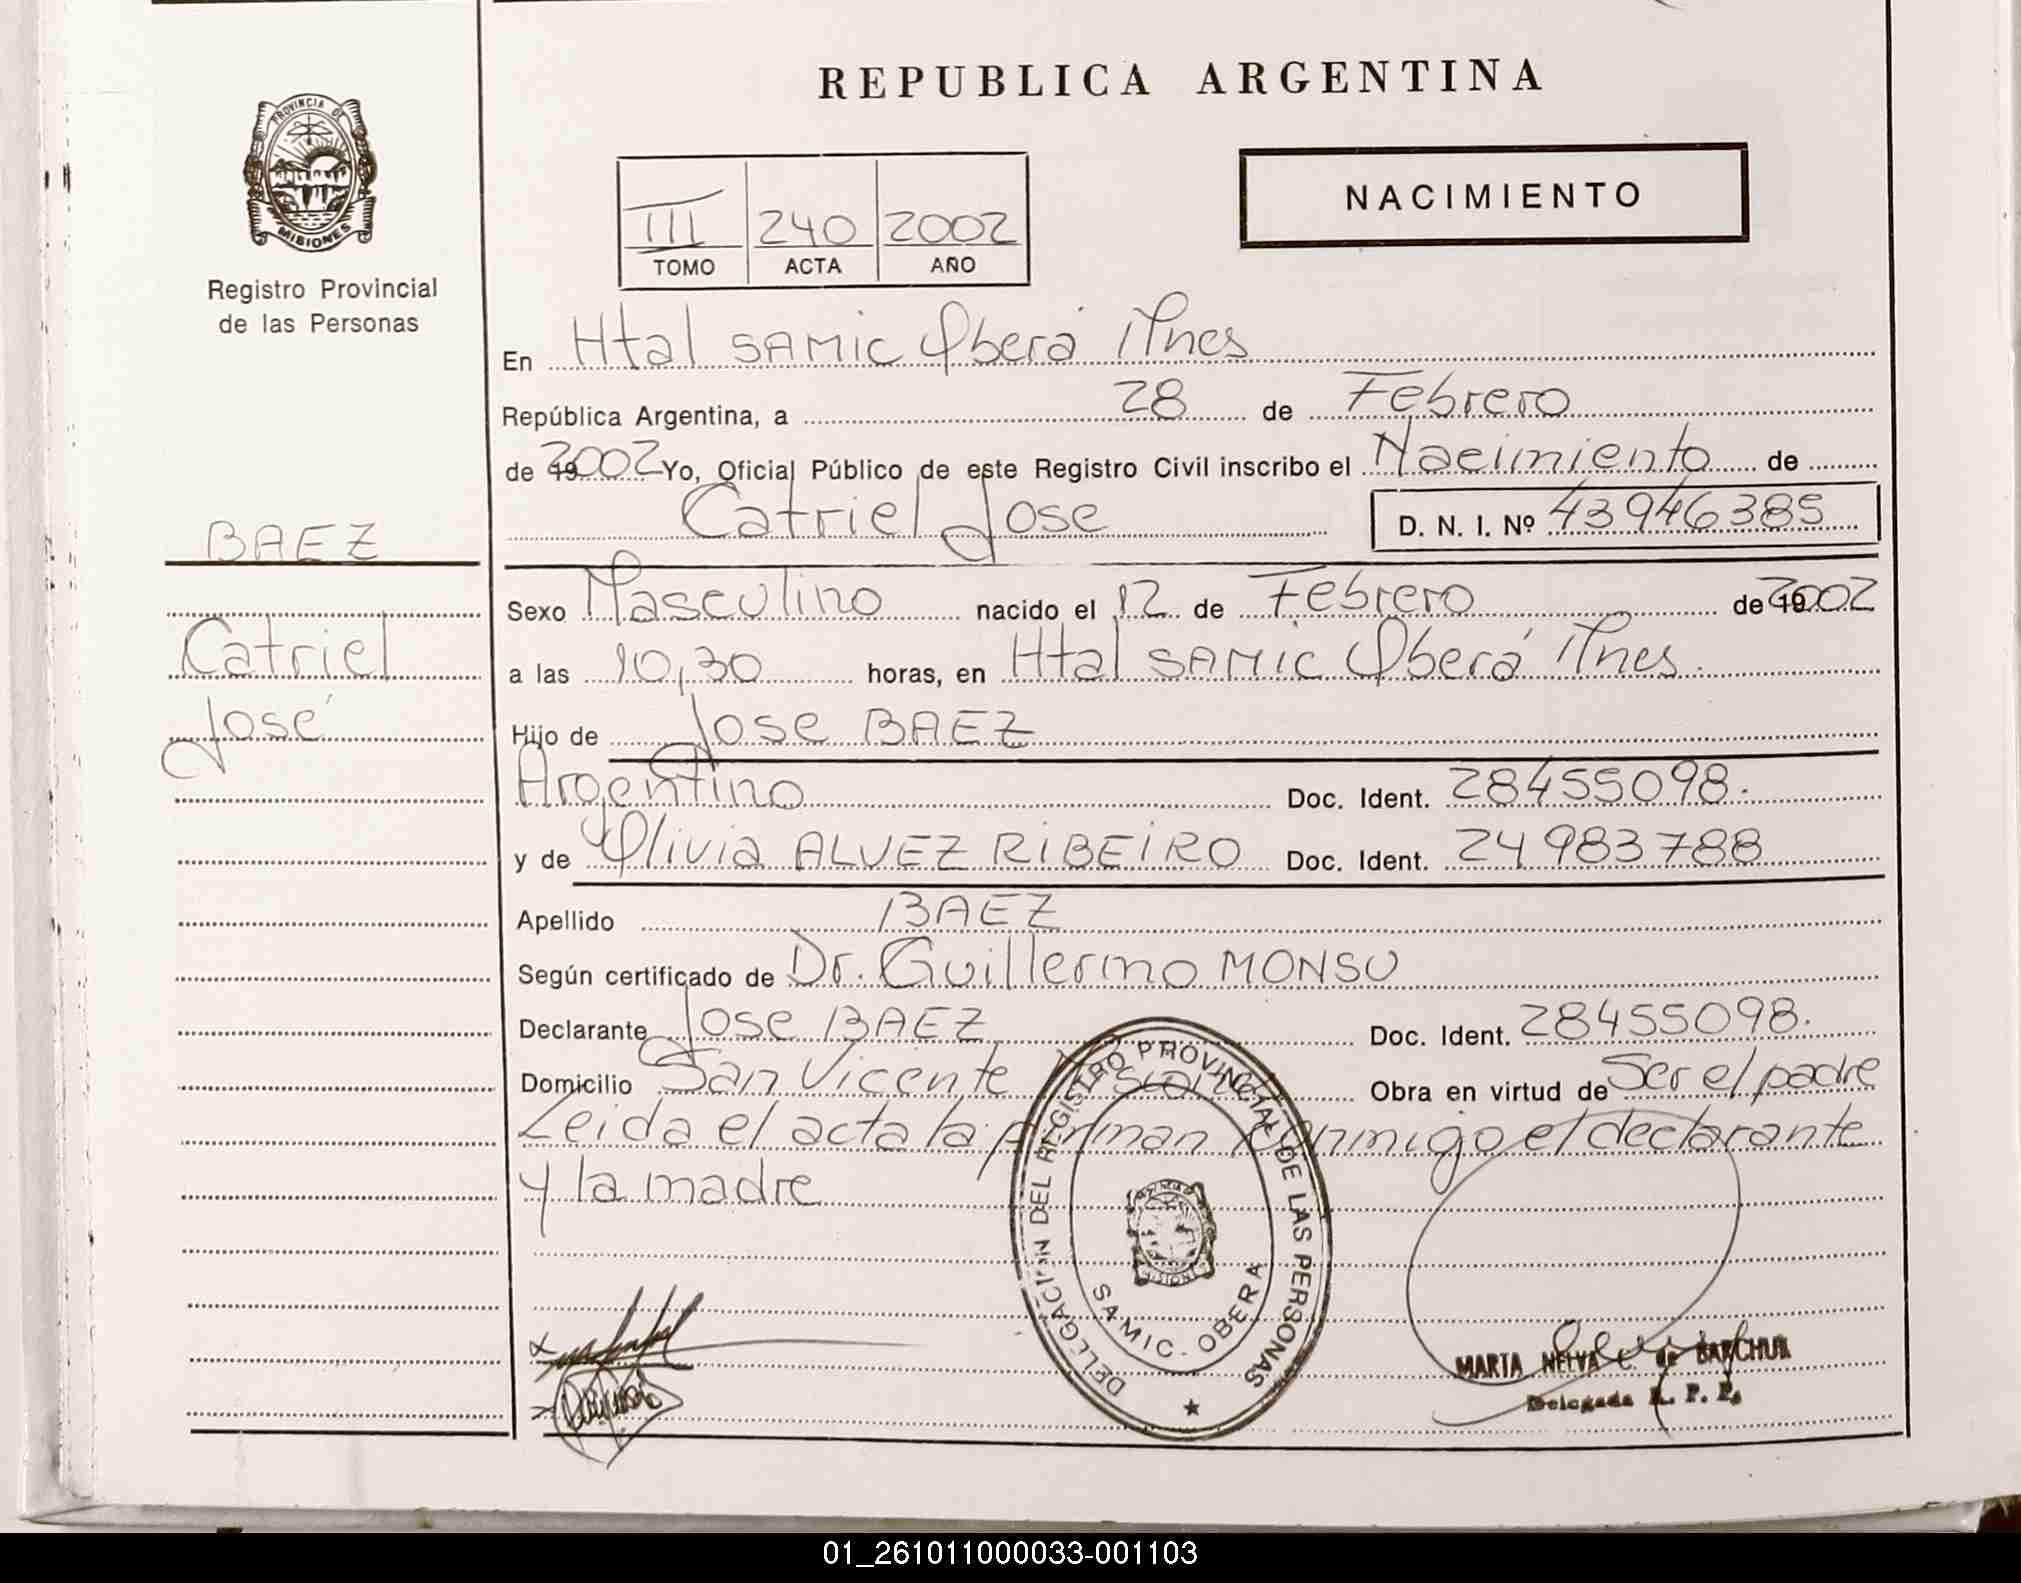 REPUBLICA ARGENTINA
PROVINCIA DE
MISIONES
Registro Provincial
de las Personas
NACIMIENTO
III 240 2002
TOMO ACTA AÑO
En Htal SAMIC Oberá Mnes
República Argentina, a 28 de Febrero
de 2002 Yo, Oficial Público de este Registro Civil inscribo el Nacimiento de
Catriel Jose D. N. I. Nº 43946385
BAEZ
Catriel
José
Sexo Masculino nacido el 12 de Febrero de 2002
a las 10,30 horas, en Htal SAMIC Oberá Mnes.
Hijo de Jose BAEZ
Argentino Doc. Ident. 28455098.
y de Olivia ALVEZ RIBEIRO Doc. Ident. 24983788
Apellido BAEZ
Según certificado de Dr. Guillermo MONSU
Declarante Jose BAEZ Doc. Ident. 28455098.
Domicilio San Vicente Misiones Obra en virtud de Ser el padre
Leida el acta la firman conmigo el declarante
y la madre
DELEGACION DEL REGISTRO PROVINCIAL DE LAS PERSONAS
SAMIC - OBERA
MARTA NELVA C. de BARCHUK
Delegada R. P. P.
01_261011000033-001103